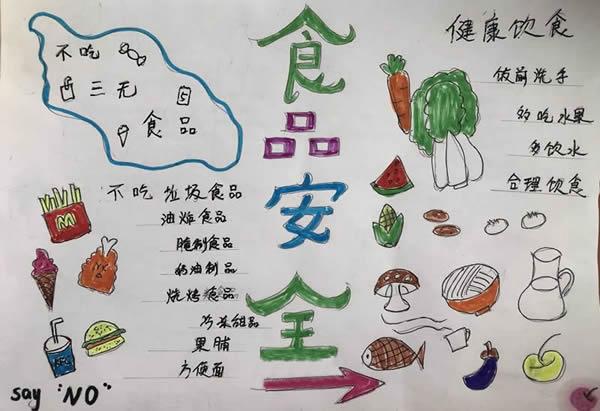 食品安全
不吃
三无
食品
不吃 垃圾食品
油炸食品
腌制食品
奶油制品
烧烤食品
甜品
果脯
方便面
say "NO"
健康饮食
饭前洗手
多吃水果
多饮水
合理饮食
M